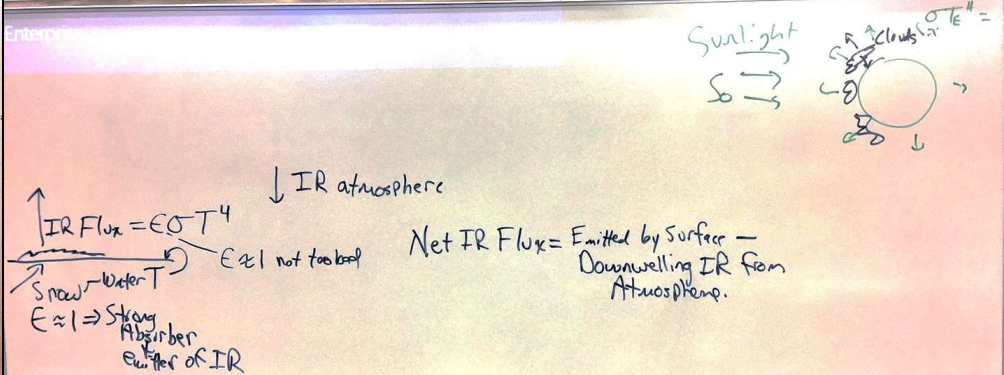 Enterpri
Sunlight
S₀
Clouds
σTE⁴ =
↓ IR atmosphere
IR Flux = ЄσT⁴
Є≈1 not too bad
Snow - Water T
Є≈1 ⇒ Strong
Absorber
emitter of IR
Net IR Flux = Emitted by Surface —
Downwelling IR from
Atmosphere.